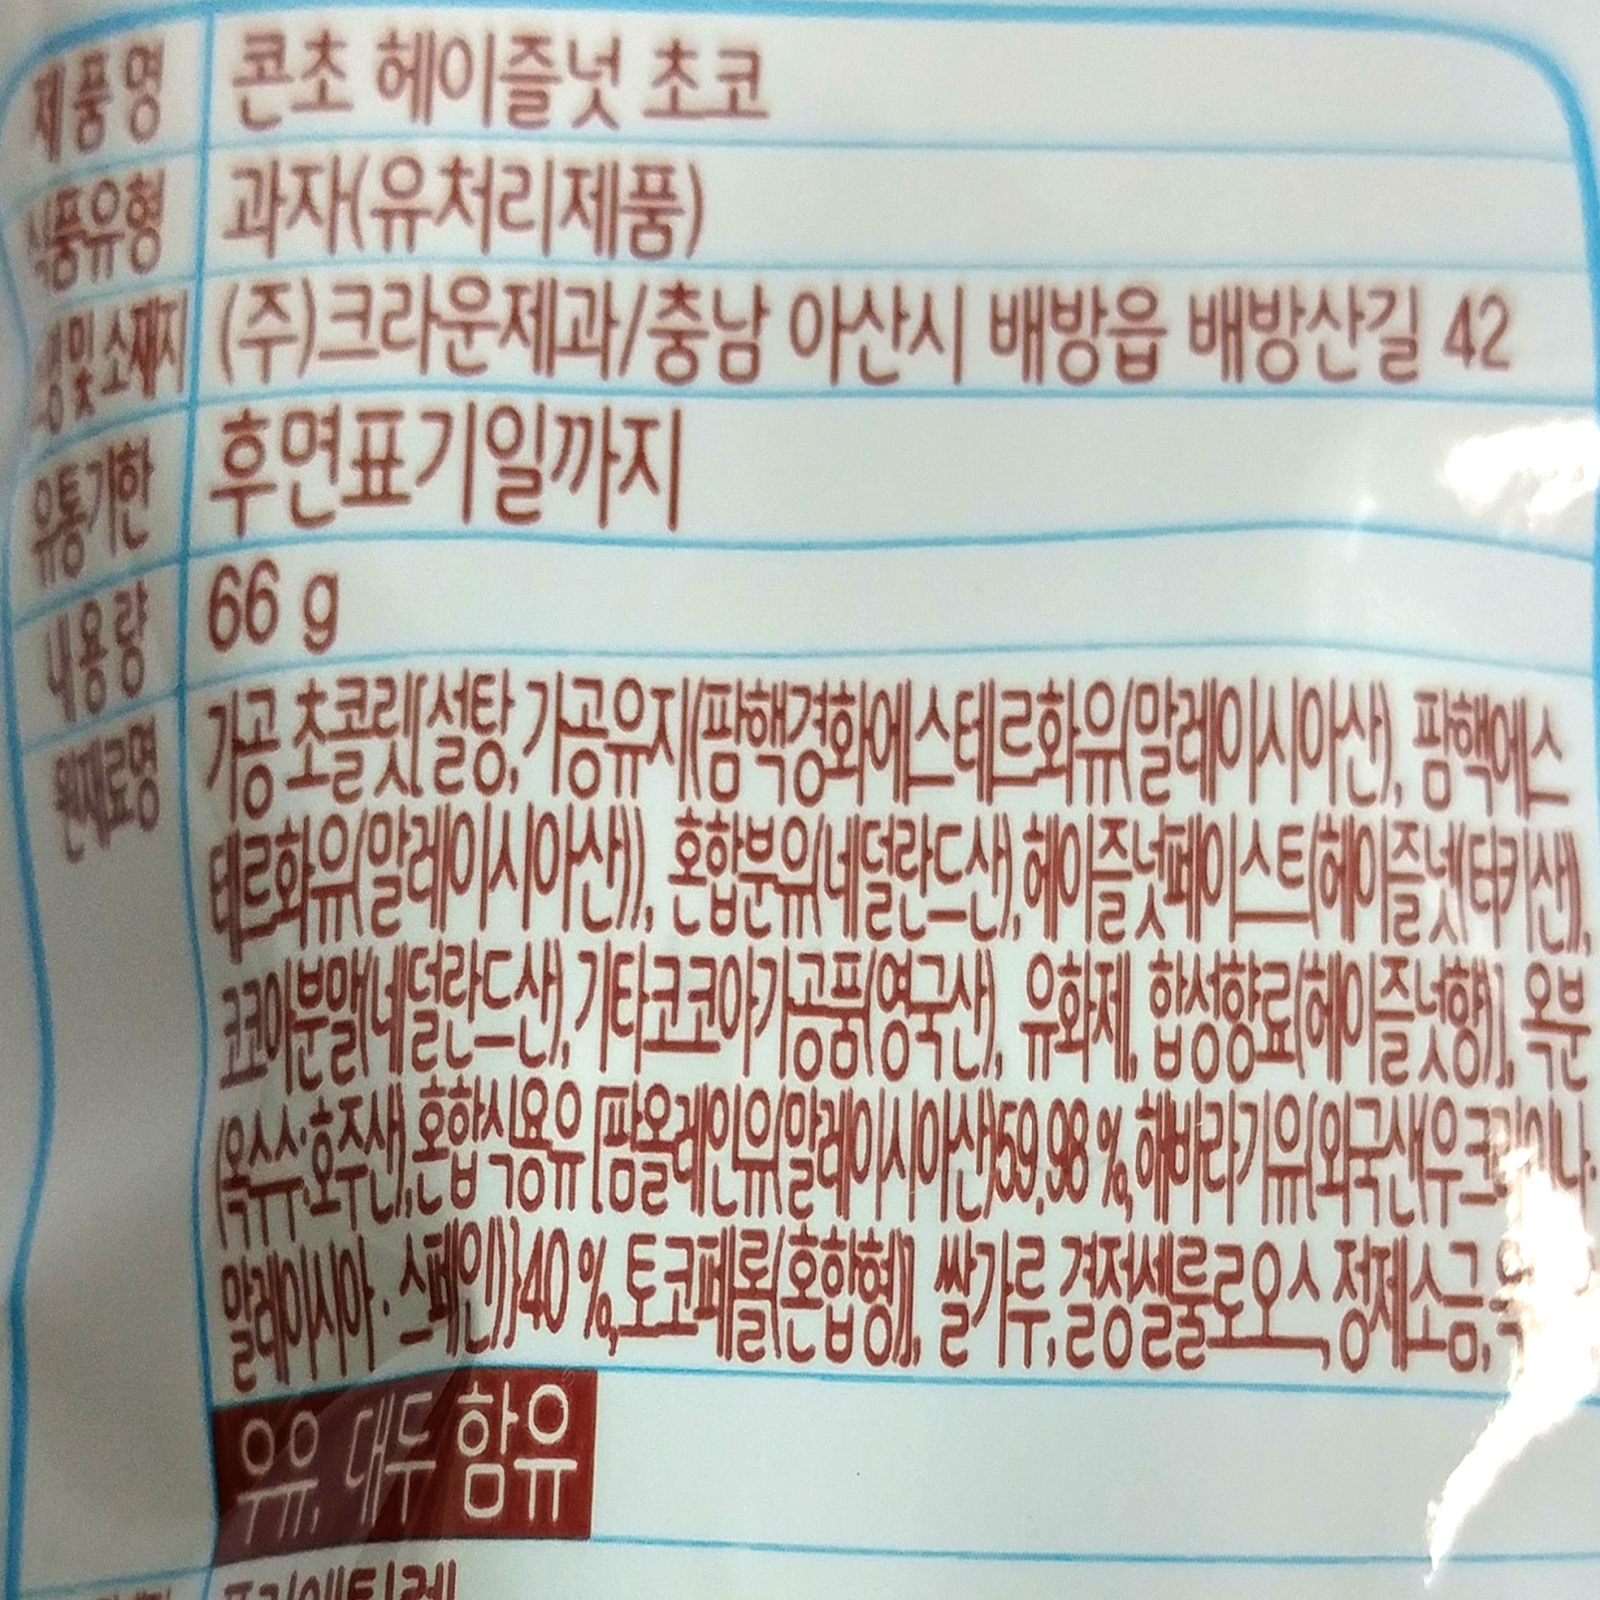 제품명 콘초 헤이즐넛 초코
식품유형 과자(유처리제품)
및 소재지 (주)크라운제과/충남 아산시 배방읍 배방산길 42
유통기한 후면표기일까지
내용량 66 g
원재료명 가공 초콜릿[설탕, 가공유지(팜핵경화에스테르화유(말레이시아산), 팜핵에스
테르화유(말레이시아산)), 혼합분유(네덜란드산), 헤이즐넛페이스트(헤이즐넛(터키산)),
코코아분말(네덜란드산), 기타코코아가공품(영국산), 유화제, 합성향료(헤이즐넛향)], 옥분
(옥수수:호주산), 혼합식용유 [팜올레인유(말레이시아산)59.98 %, 해바라기유{외국산(우크라이나·
말레이시아·스페인)}40 %, 토코페롤(혼합형)], 쌀가루, 결정셀룰로오스, 정제소금,
우유, 대두 함유